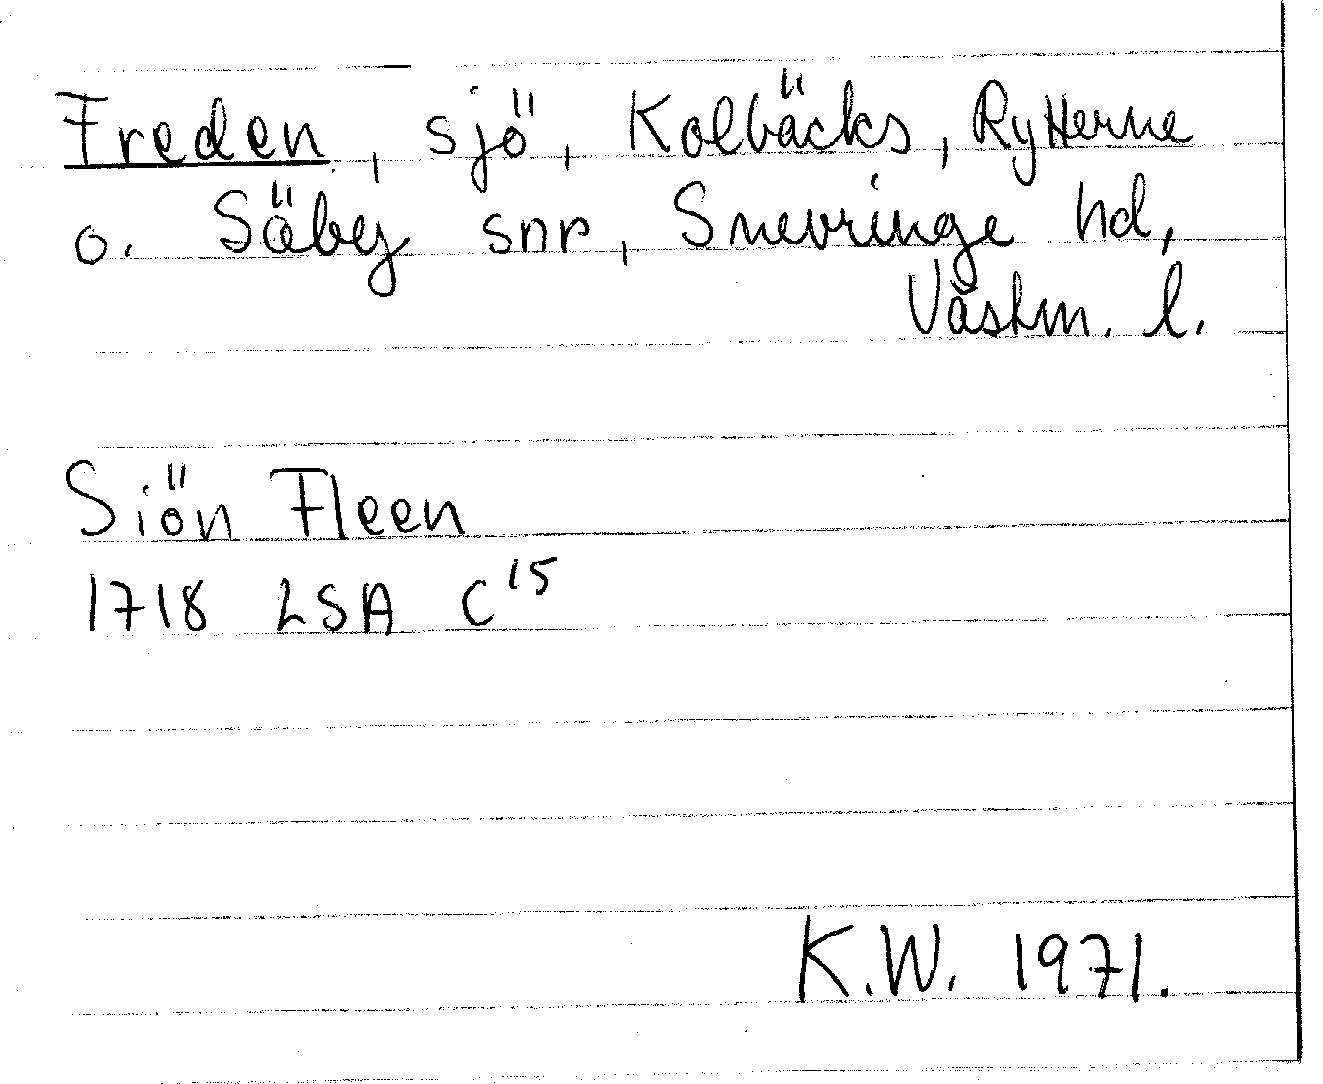 Freden, sjö, Kolbäcks, Rytterne
o. Säby snr, Snevringe hd,
Västm. l.
Siön Fleen
1718 LSA C15
K.W. 1971.